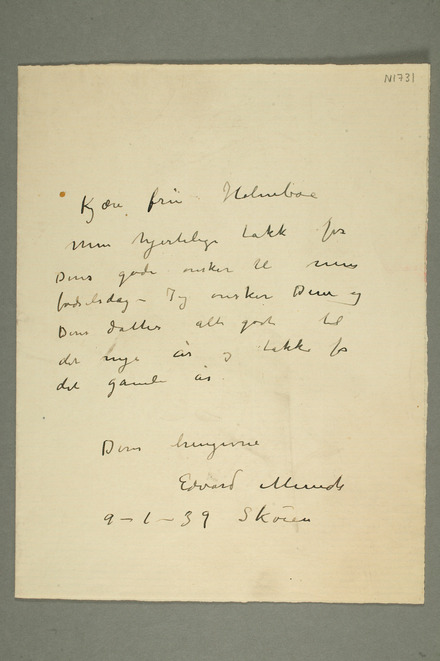 N1731
Kjære frue Holmboe
Min hjertelige takk for
Deres gode ønsker til min
fødselsdag – Jeg ønsker Dem og
Deres datter alt godt til
det nye år og takke for
det gamle år.
Deres hengivne
Edvard Munch
9–1–39 Skøien